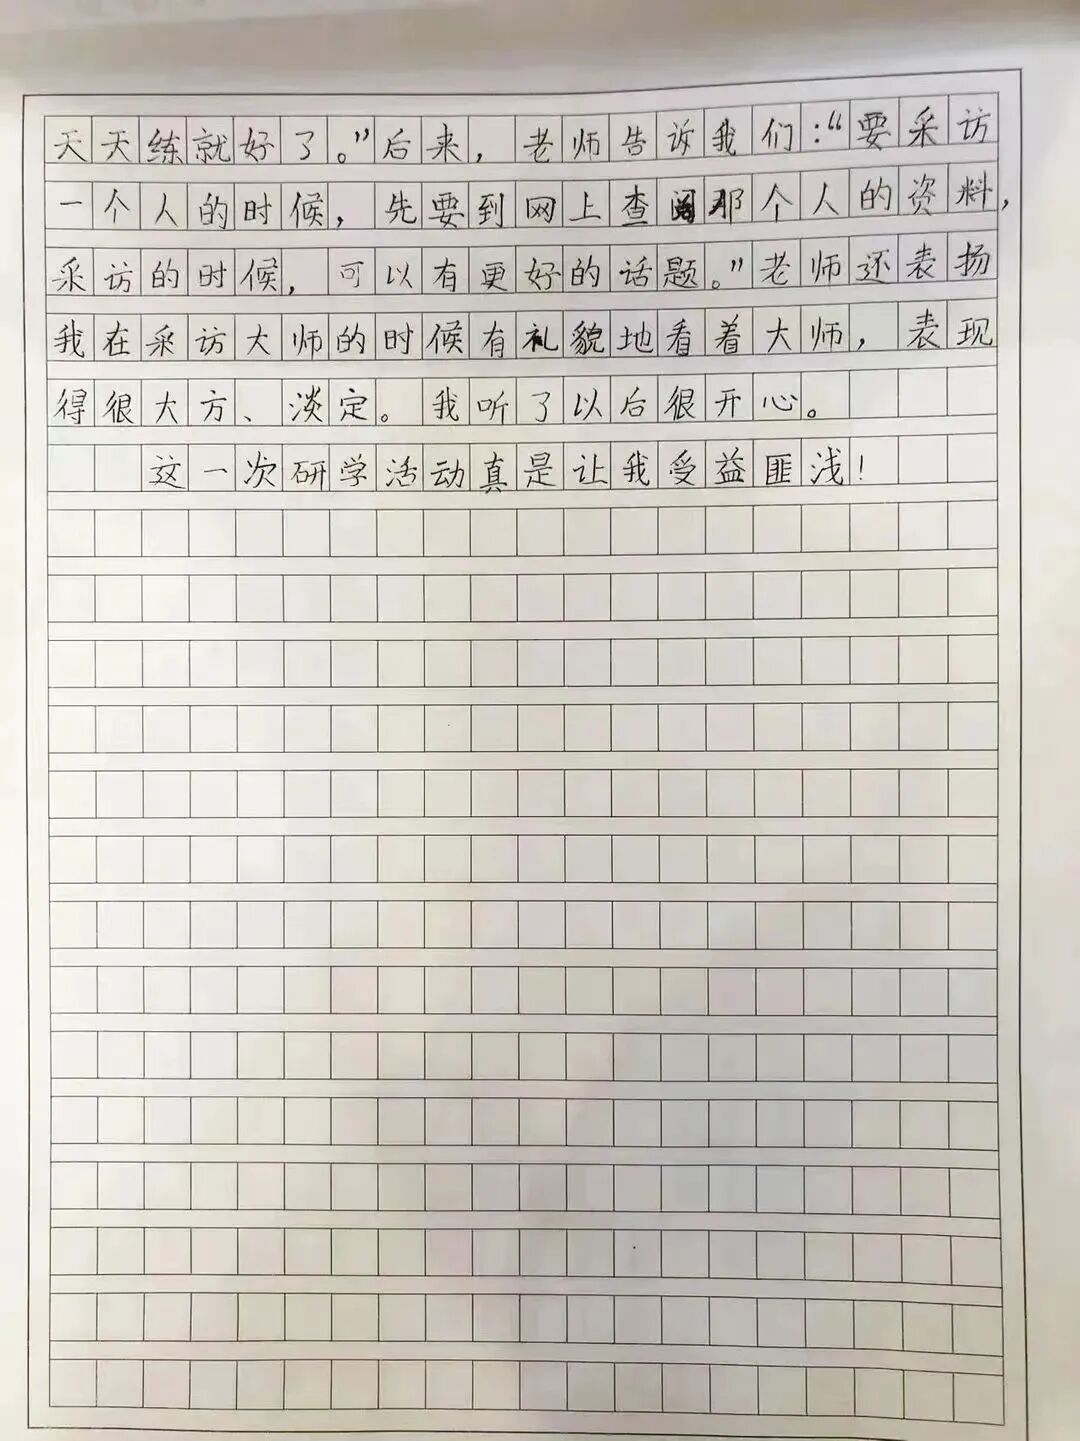 天天练就好了。”后来，老师告诉我们：“要采访
一个人的时候，先要到网上查阅那个人的资料，
采访的时候，可以有更好的话题。”老师还表扬
我在采访大师的时候有礼貌地看着大师，表现
得很大方、淡定。我听了以后很开心。
这一次研学活动真是让我受益匪浅！